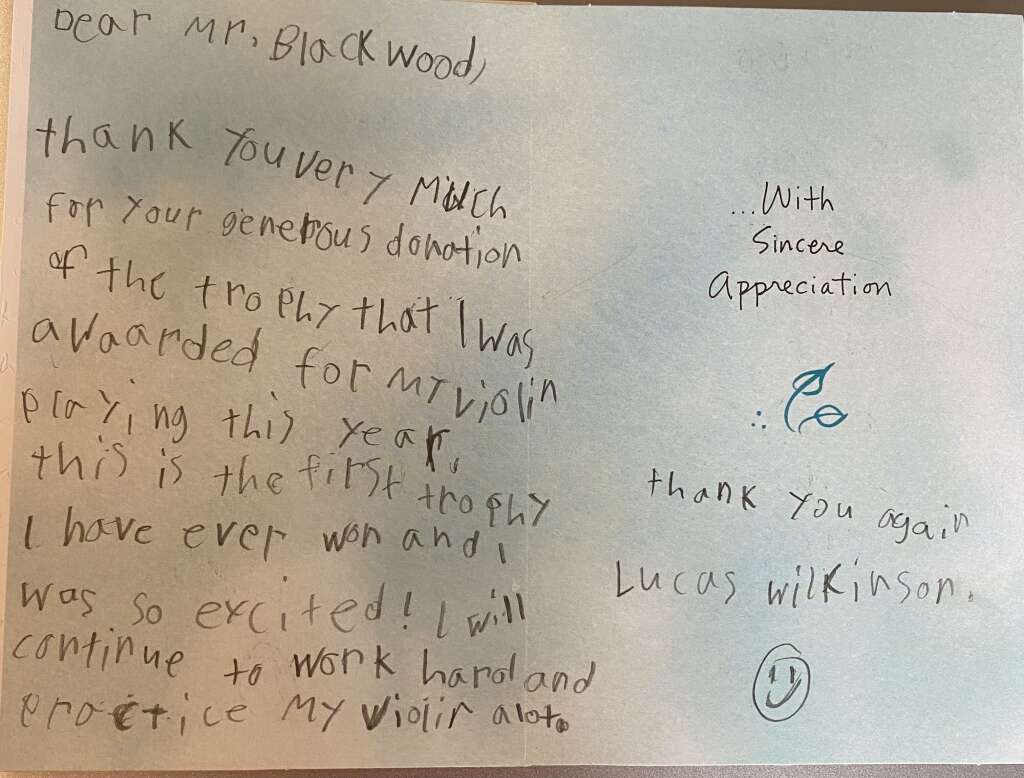 Dear Mr. Blackwood,
thank you very much
for your generous donation
of the trophy that I was
awaarded for my violin
playing this year.
this is the first trophy
I have ever won and i
was so excited! I will
continue to work hard and
practice my violin alot.
...With
Sincere
Appreciation
thank you again
Lucas wilkinson.